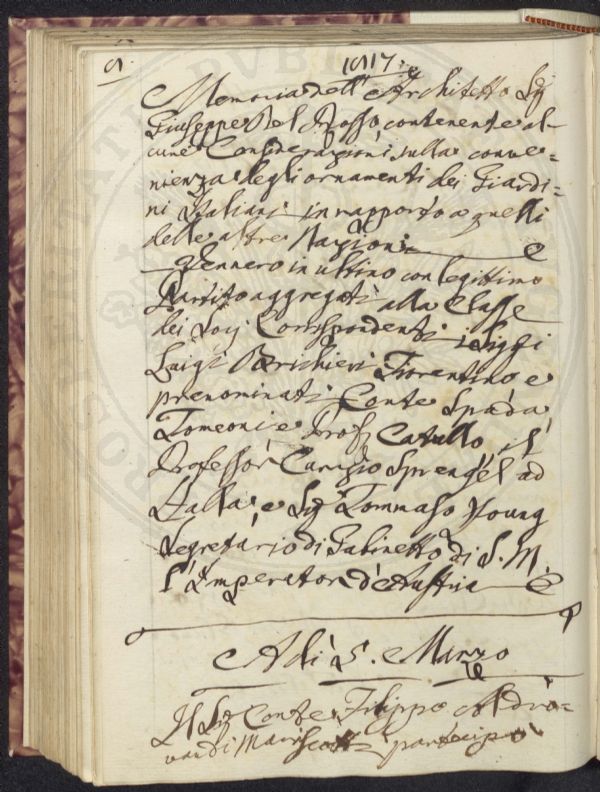 1817.
Memoria dell'Architetto Sig
Giuseppe Del Rosso, contenente al-
cune Considerazioni sulla conve=
nienza degli ornamenti dei Giardi=
ni Italiani in rapporto a quelli
delle altre Nazioni
Vennero in ultimo con legittimo
Partito aggregati alla Classe
dei Socj Corrispondenti i Sig.ri
Luigi Fiorentino e
prenominati Conte Spada
Tomeoni e Prof. Catullo, il
Professor Curzio Sprengel ad
Halla, e Sig Tommaso Young
Segretario di Gabinetto di S. M.
l'Imperator d'Austria
Adi 5. Marzo
Il Sig Conte Filippo Aldro=
vandi Mariscotti partecipò